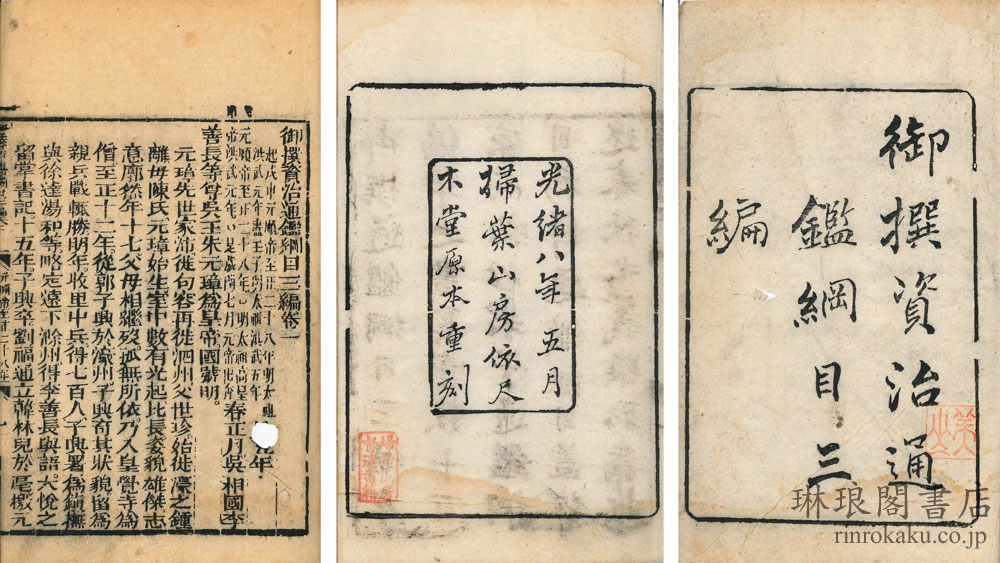 御撰資治通
鑑綱目三
編
光緒八年五月
掃葉山房依尺
木堂原本重刻
御撰資治通鑑綱目三編卷一
起戊申元順帝至正二十八年明太祖
洪武元年盡壬子明太祖洪武五年
元順帝至正二十八年○明太祖高皇
帝洪武元年○是歲閏七月元帝出 春正月吳相國李
善長等尊吳王朱元璋爲皇帝國號明。
元璋先世家沛徙句容再徙泗州父世珍始徙濠之鍾
離母陳氏元璋始生室中數有光起比長姿貌雄傑志
意廓然年十七父母相繼歿孤無所依乃入皇覺寺爲
僧至正十二年從郭子興於濠州子興奇其狀貌留爲
親兵戰輒勝明年收里中兵得七百人子興署爲鎮撫
與徐達湯和等略定遠下滁州得李善長與語大悅之
留掌書記十五年子興卒劉福通立韓林兒於亳檄元
琳琅閣書店
rinrokaku.co.jp